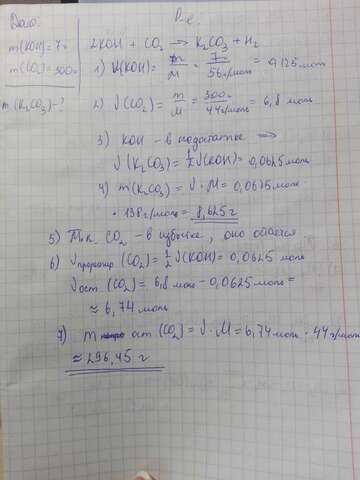 Дано:
m(KOH) = 7г
m(CO₂) = 300г
m(K₂CO₃) - ?
Р-е.
2KOH + CO₂ → K₂CO₃ + H₂
1) V(KOH) = m/M = 7/56г/моль = 0,125 моль
2) V(CO₂) = m/M = 300г/44г/моль = 6,8 моль
3) KOH - в недостатке ⟹
V(K₂CO₃) = 1/2 V(KOH) = 0,0625 моль
4) m(K₂CO₃) = V · M = 0,0625 моль
· 138г/моль = 8,625 г
5) Т.к. CO₂ - в избытке, оно остается
6) V прореагир (CO₂) = 1/2 V(KOH) = 0,0625 моль
V ост. (CO₂) = 6,8 моль - 0,0625 моль =
≈ 6,74 моль
7) m ост (CO₂) = V · M = 6,74 моль · 44г/моль
≈ 296,45 г